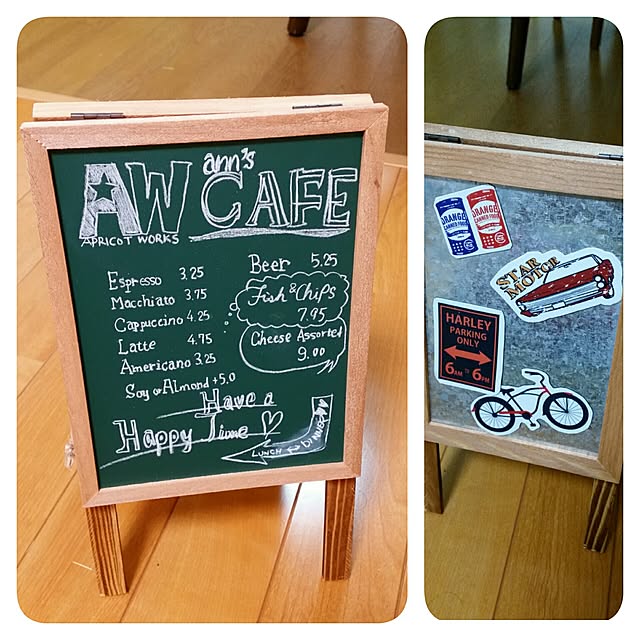 AW
APRICOT WORKS
ann's
CAFE
Espresso 3.25
Macchiato 3.75
Cappuccino 4.25
Latte 4.75
Americano 3.25
Soy or Almond +5.0
Beer 5.25
Fish & Chips
7.95
Cheese Assorted
9.00
Have a
Happy Time
LUNCH & DINNER
ORANGE
ORANGE
STAR
MOTOR
HARLEY
PARKING
ONLY
6AM TO 6PM